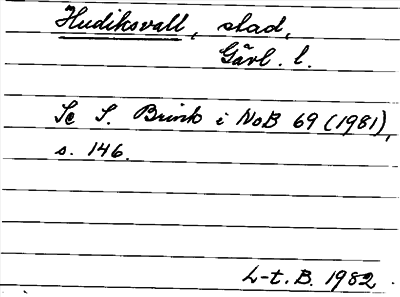 Hudiksvall, stad,
Gävl. l.
Se S. Brink i NoB 69 (1981),
s. 146.
L-t. B. 1982.